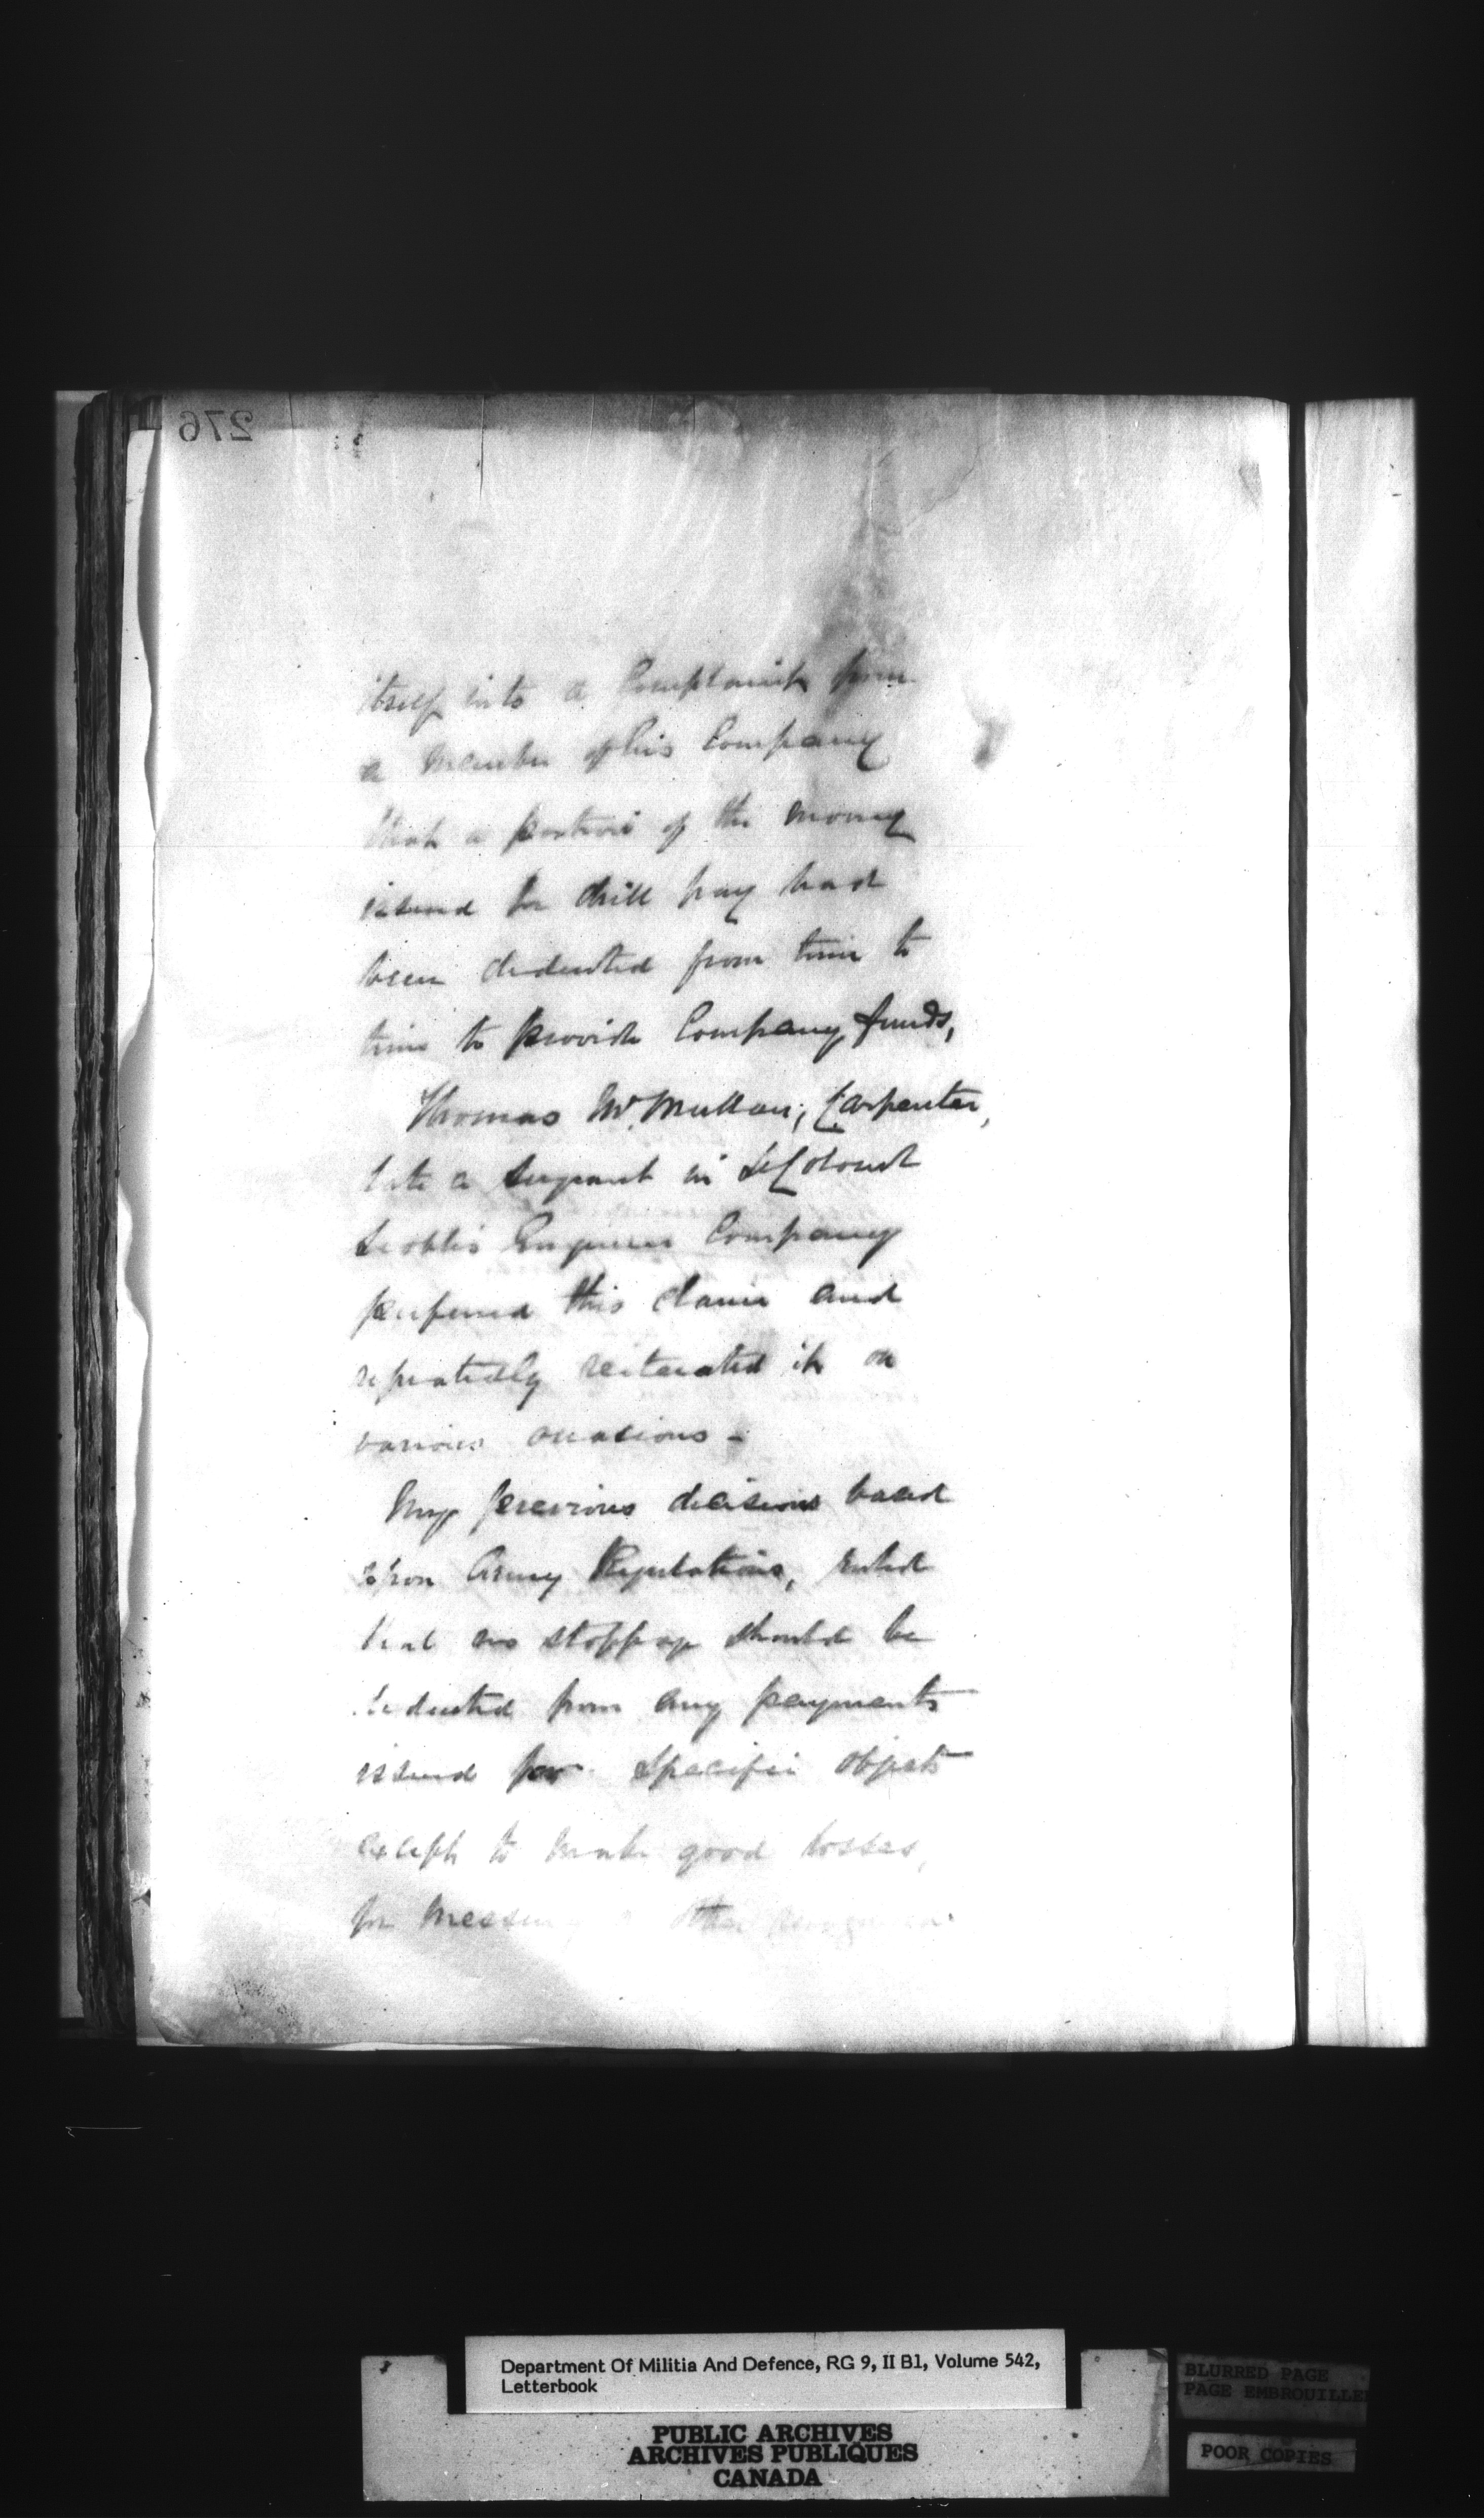 276
itself into a Complaint from
a Member of his Company
that a portion of the money
issued for drill pay had
been deducted from time to
time to provide Company funds,
Thomas McMullan, Carpenter,
late a Sergeant in Lt Colonel
Scoble's Engineer Company
preferred this claim and
repeatedly reiterated it on
various occasions -
My previous decisions based
upon Army Regulations, ruled
that no stoppage should be
deducted from any payments
issued for specific objects
except to make good losses,
for messing other
Department Of Militia And Defence, RG 9, II B1, Volume 542,
Letterbook
PUBLIC ARCHIVES
ARCHIVES PUBLIQUES
CANADA
BLURRED PAGE
PAGE EMBROUILLE
POOR COPIES